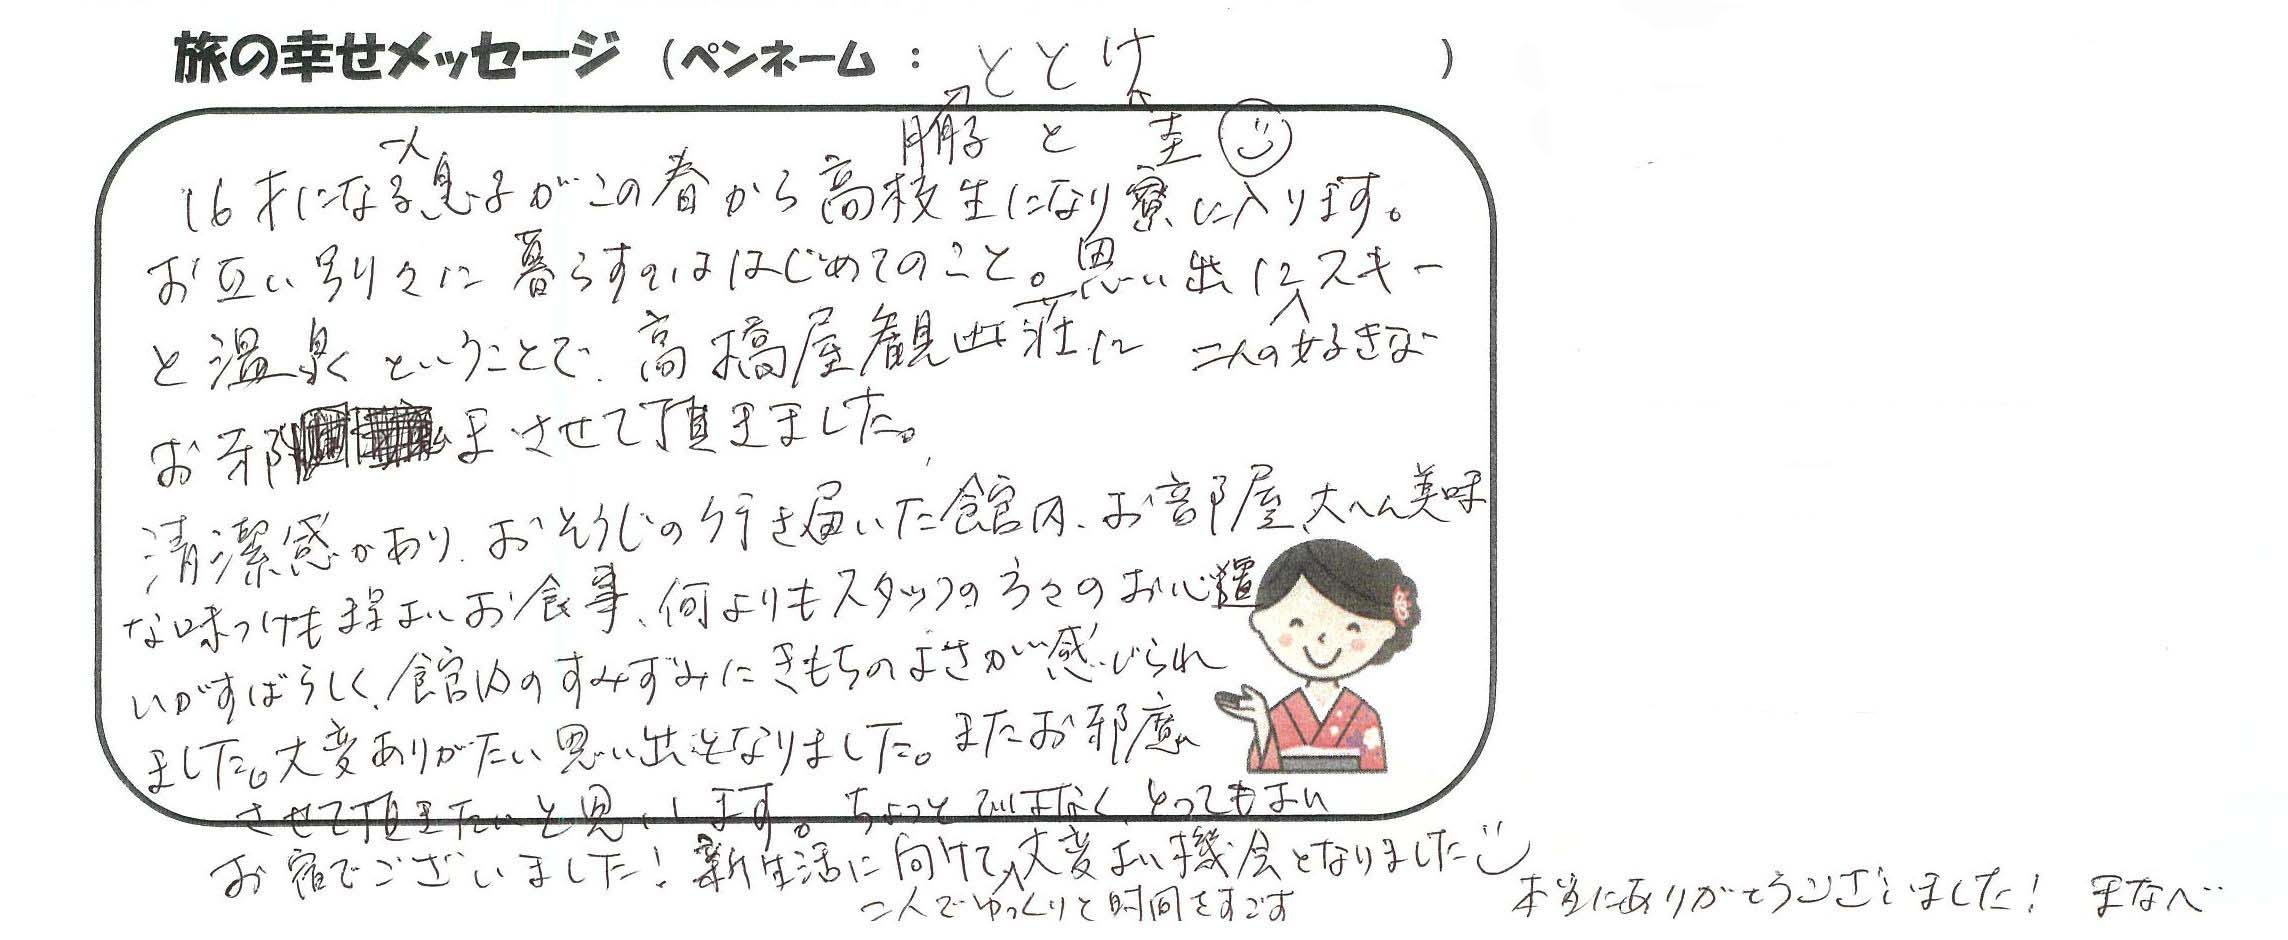 旅の幸せメッセージ (ペンネーム : ととけ )
と 圭
一人
16才になる息子がこの春から高校生になり寮に入ります。
お互い別々に暮らすのははじめてのこと。思い出にスキー
と温泉ということで、高橋屋観山荘に 二人の好きな
お邪まさせて頂きました。
清潔感があり、おそうじの行き届いた館内、お部屋、大へん美味
な味つけも程よいお食事、何よりもスタッフの方々のお心遣
いがすばらしく、館内のすみずみにきもちのよさが感じられ
ました。大変ありがたい思い出となりました。またお邪魔
させて頂きたいと思いします。ちょっとではなく、とってもよい
お宿でございました! 新生活に向けて、大変よい機会となりました
二人でゆっくりと時間をすごす
本当にありがとうございました! まなべ